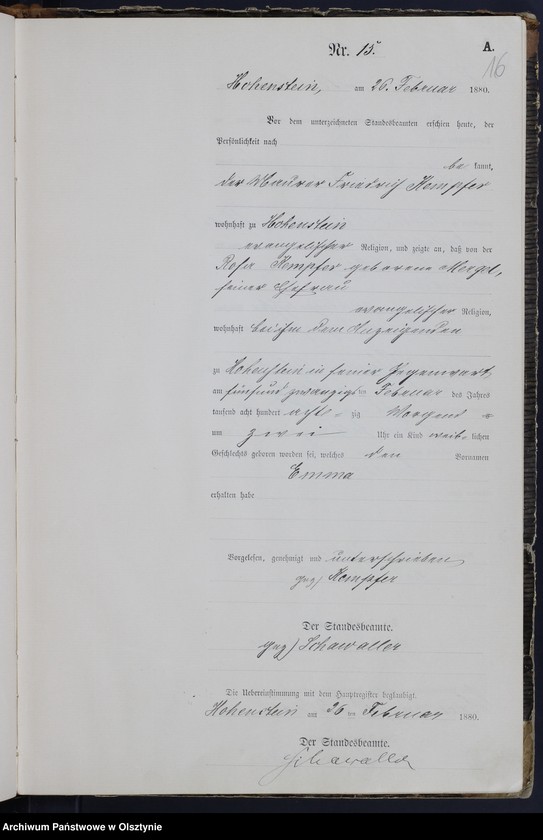 Nr. 15.
A.
16
Hohenstein, am 26. Februar 1880.
Vor dem unterzeichneten Standesbeamten erschien heute, der
Persönlichkeit nach
be kannt,
der Maurer Friedrich Kempfer
wohnhaft zu Hohenstein
evangelischer Religion, und zeigte an, daß von der
Rosa Kempfer geborene
seiner Ehefrau
evangelischer Religion,
wohnhaft bei ihm dem Anzeigenden
zu Hohenstein in seiner Gegenwart,
am fünfund zwanzigsten Februar des Jahres
tausend acht hundert acht zig Morgens
um zwei Uhr ein Kind weib lichen
Geschlechts geboren worden sei, welches den Vornamen
Emma
erhalten habe
Vorgelesen, genehmigt und unterschrieben
gez) Kempfer
Der Standesbeamte.
gez) Schawaller
Die Uebereinstimmung mit dem Hauptregister beglaubigt.
Hohenstein am 26 ten Februar 1880.
Der Standesbeamte.
Schawaller
Archiwum Państwowe w Olsztynie